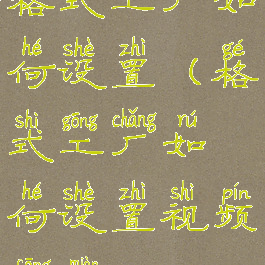 格式工厂如
hé shè zhì gé
何设置（格
shì gōng chǎng rú
式工厂如
hé shè zhì shì pín
何设置视频